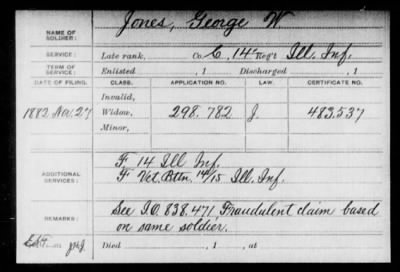 NAME OF SOLDIER: Jones, George W
SERVICE: Late rank, Co. C, 14" Reg't Ill. Inf.
TERM OF SERVICE: Enlisted , 1 Discharged , 1
DATE OF FILING. CLASS. APPLICATION NO. LAW. CERTIFICATE NO.
Invalid,
1882 Nov. 27 Widow, 298.782 J. 483.537
Minor,
F 14 Ill Inf.
ADDITIONAL SERVICES: F Vet. Bttn. 14/15 Ill. Inf.
REMARKS: See I.O. 838.471, Fraudulent claim based
on same soldier.
Died , 1 , at